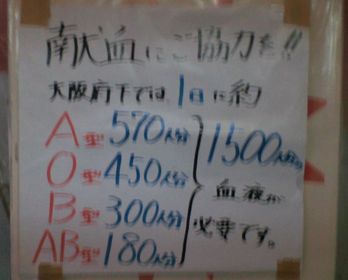 献血にご協力を!!
大阪府下では、1日に約
A型570人分
O型450人分
B型300人分
AB型180人分
1500人分の
血液が
必要です。